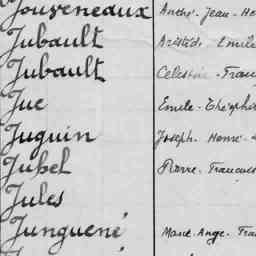 Jouveneaux André - Jean - He
Jubault Aristide Emile
Jubault Célestin - Fran
Jue Emile - Théophi
Juguin Joseph - Henri -
Juhel Pierre - François
Jules
Junguené Marie - Ange - Fra